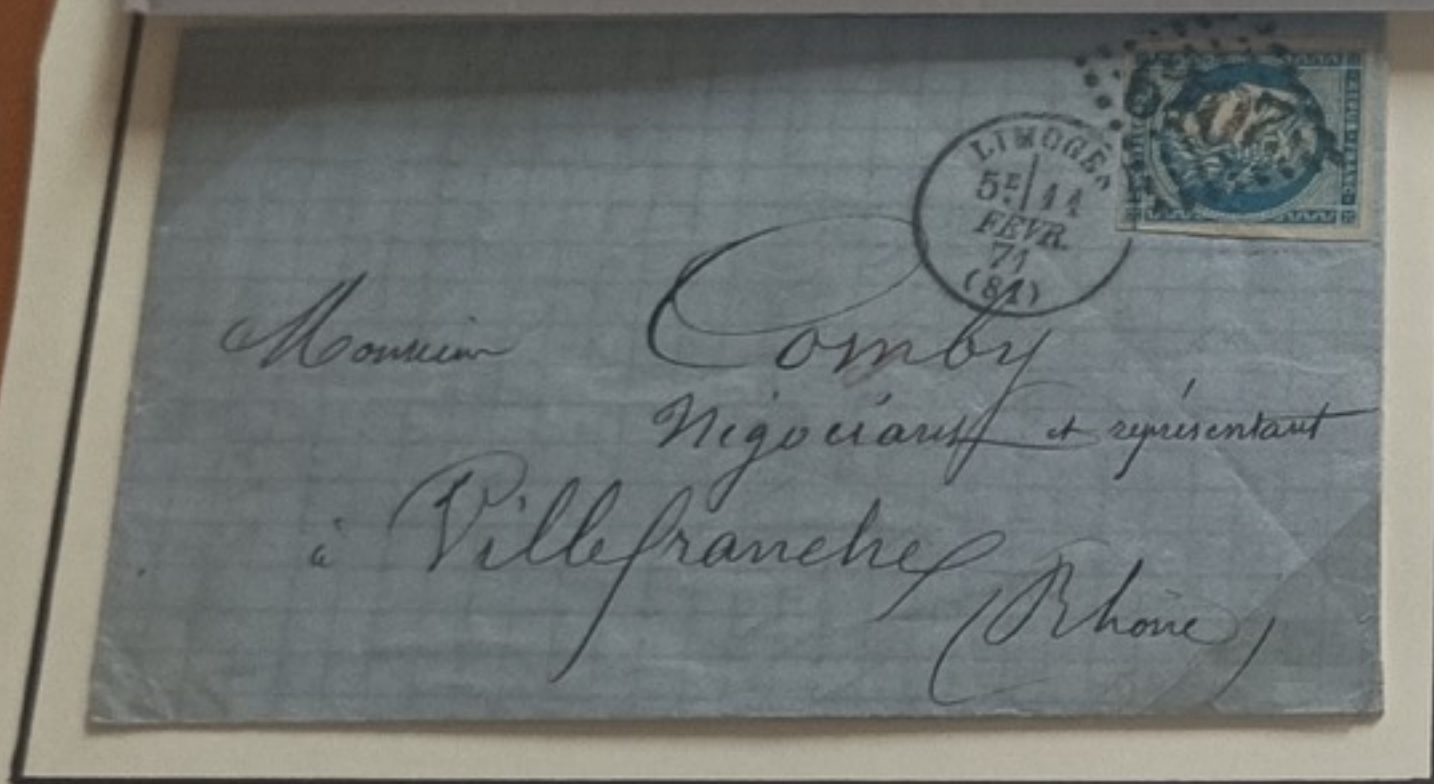 LIMOGES
5E 11
FEVR.
71
(81)
Monsieur Comby
Négociant et représentant
à Villefranche
(Rhône)